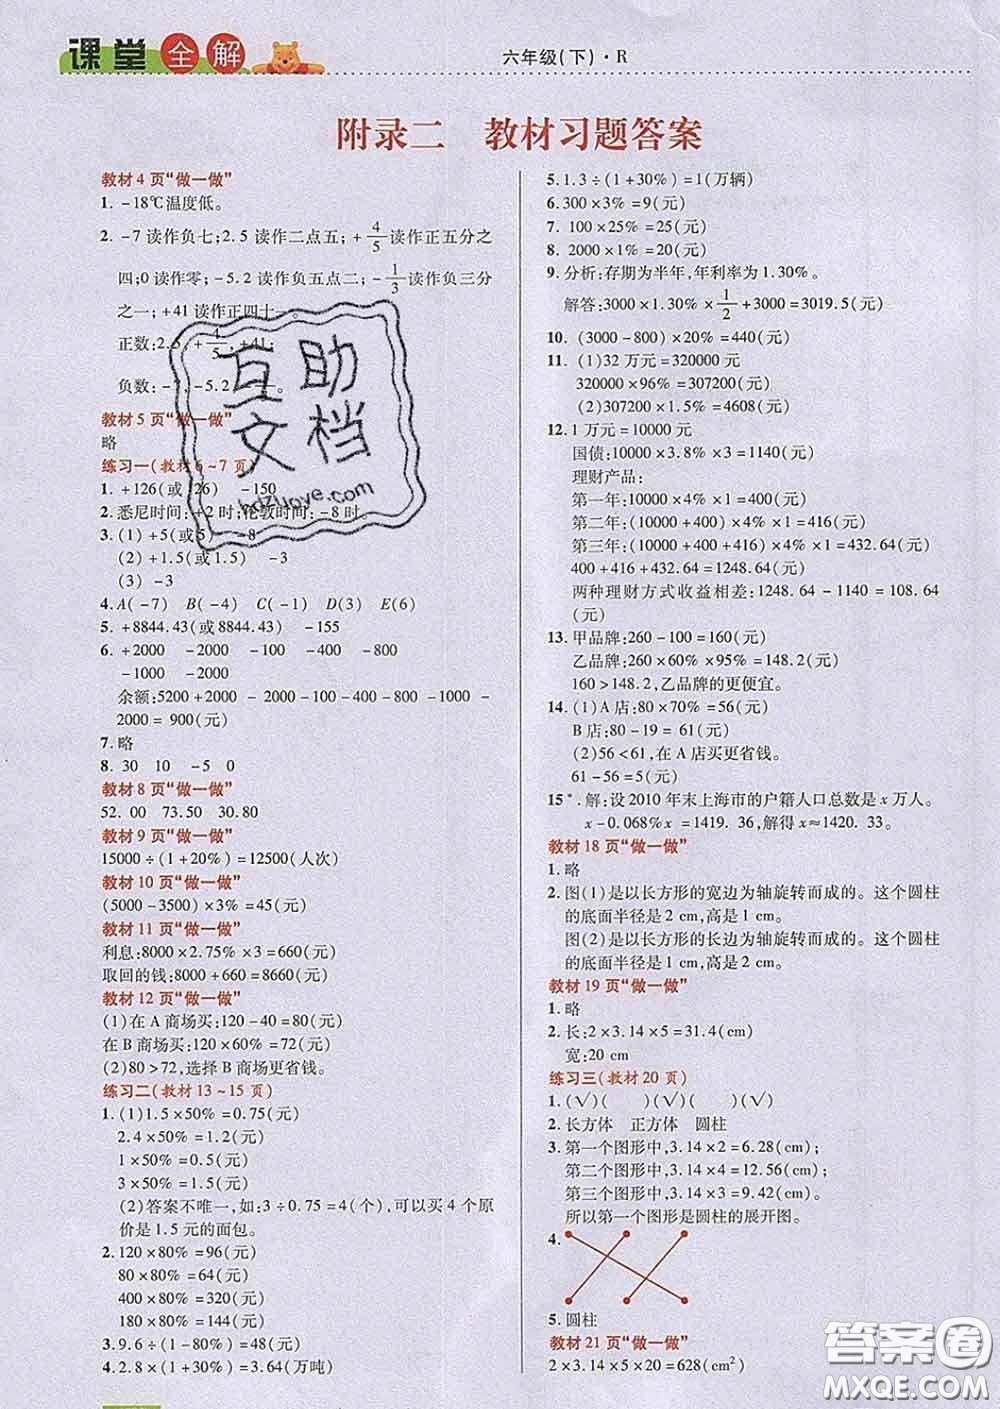 课堂全解
六年级(下)·R
附录二 教材习题答案
教材4页“做一做”
1. -18℃温度低。
2. -7读作负七;2.5读作二点五;+4/5读作正五分之
四;0读作零;-5.2读作负五点二;-1/3读作负三分
之一;+41读作正四十一。
正数:2.5,+4/5,+41;
负数:-7,-5.2
教材5页“做一做”
略
练习一(教材6~7页)
1. +126(或126) -150
2. 悉尼时间:+2时;伦敦时间:-8时
3. (1)+5(或5) -8
(2)+1.5(或1.5) -3
(3) -3
4. A(-7) B(-4) C(-1) D(3) E(6)
5. +8844.43(或8844.43) -155
6. +2000 -2000 -100 -400 -800
-1000 -2000
余额:5200+2000 -2000-100-400-800 -1000 -
2000= 900(元)
7. 略
8. 30 10 -5 0
教材8页“做一做”
52.00 73.50 30.80
教材9页“做一做”
15000÷(1+20%)=12500(人次)
教材10页“做一做”
(5000-3500)×3%=45(元)
教材11页“做一做”
利息:8000×2.75%×3=660(元)
取回的钱:8000+660=8660(元)
教材12页“做一做”
(1)在A商场买:120-40=80(元)
在B商场买:120×60%=72(元)
(2)80>72,选择B商场更省钱。
练习二(教材13~15页)
1. (1)1.5×50%=0.75(元)
2.4×50%=1.2(元)
1×50%=0.5(元)
3×50%=1.5(元)
(2)答案不唯一,如:3÷0.75=4(个),可以买4个原
价是1.5元的面包。
2. 120×80%=96(元)
80×80%=64(元)
400×80%=320(元)
180×80%=144(元)
3. 9.6÷(1-80%)=48(元)
4. 2.8×(1+30%)=3.64(万吨)
5. 1.3÷(1+30%)=1(万辆)
6. 300×3%=9(元)
7. 100×25%=25(元)
8. 2000×1%=20(元)
9. 分析:存期为半年,年利率为1.30%。
解答:3000×1.30%×1/2+3000=3019.5(元)
10. (3000-800)×20%=440(元)
11. (1)32万元=320000元
320000×96%=307200(元)
(2)307200×1.5%=4608(元)
12. 1万元=10000元
国债:10000×3.8%×3=1140(元)
理财产品:
第一年:10000×4%×1=400(元)
第二年:(10000+400)×4%×1=416(元)
第三年:(10000+400+416)×4%×1=432.64(元)
400+416+432.64=1248.64(元)
两种理财方式收益相差:1248.64-1140=108.64
(元)
13. 甲品牌:260-100=160(元)
乙品牌:260×60%×95%=148.2(元)
160>148.2,乙品牌的更便宜。
14. (1)A店:80×70%=56(元)
B店:80-19=61(元)
(2)56<61,在A店买更省钱。
61-56=5(元)
15*. 解:设2010年末上海市的户籍人口总数是x万人。
x-0.068%x=1419.36,解得x≈1420.33。
教材18页“做一做”
1. 略
2. 图(1)是以长方形的宽边为轴旋转而成的。这个圆柱
的底面半径是2 cm,高是1 cm。
图(2)是以长方形的长边为轴旋转而成的。这个圆柱
的底面半径是1 cm,高是2 cm。
教材19页“做一做”
1. 略
2. 长:2×3.14×5=31.4(cm)
宽:20 cm
练习三(教材20页)
1. (√)( )(√)( )(√)
2. 长方体 正方体 圆柱
3. 第一个图形中,3.14×2=6.28(cm);
第二个图形中,3.14×4=12.56(cm);
第三个图形中,3.14×3=9.42(cm)。
所以第一个图形是圆柱的展开图。
4.
5. 圆柱
教材21页“做一做”
2×3.14×5×20=628(cm²)
互助
文档
hdzuoye.com
答案圈
MXQE.COM